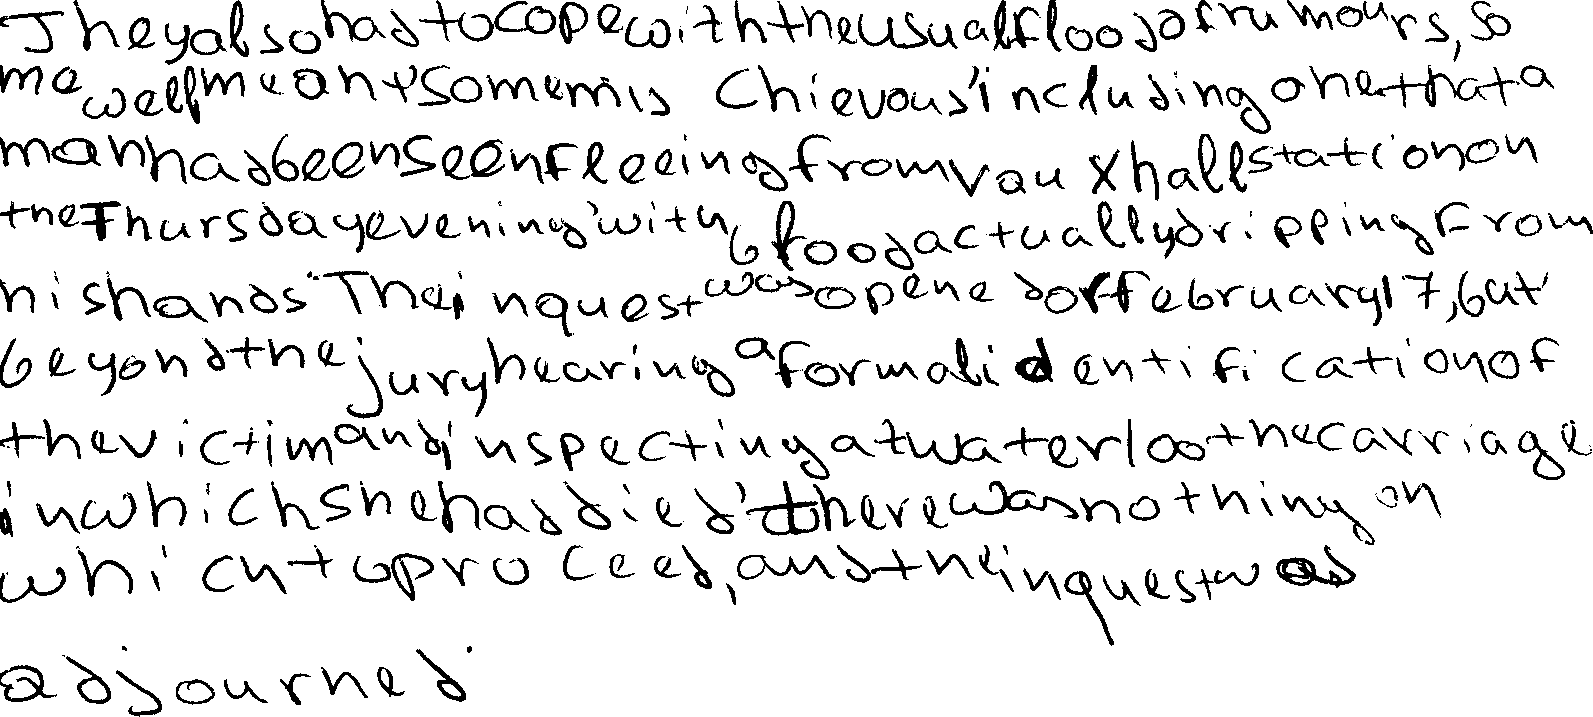 They also had to cope with the usual flood of rumours, so
me well meant some mis chievous including one that a
man had been seen fleeing from Vauxhall station on
the Thursday evening with blood actually dripping from
his hands. The inquest was opened on February 17, but
beyond the jury hearing a formal identification of
the victim and inspecting at waterloo the carriage
in which she had died there was nothing on
which to proceed, and the inquest was
adjourned.